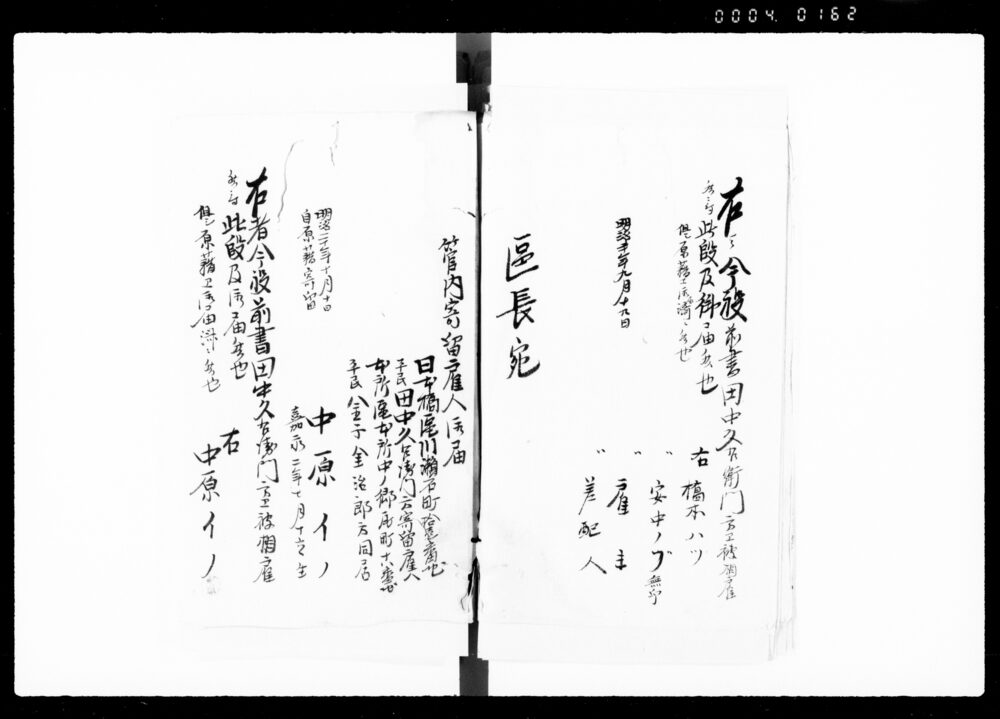 0004 0162
右之今般前書田中久右衛門方エ被相雇
候ニ付此段及御届候也
但原籍エ届済ニ候也
右 橋本ハツ
〃 安中ノブ 無印
〃 雇主
〃 差配人
明治廿年九月十九日
區長宛
管内寄留雇人御届
日本橋區川瀬石町
平民田中久右衛門方寄留雇人
本所區本所中ノ郷
平民金子金治郎方同居
中原イノ
嘉永二年七月十六日生
明治二十年十月十日
自原籍寄留
右者今般前書田中久右衛門方エ被相雇
候ニ付此段及御届候也
但原籍エ御届済ニ候也
右
中原イノ